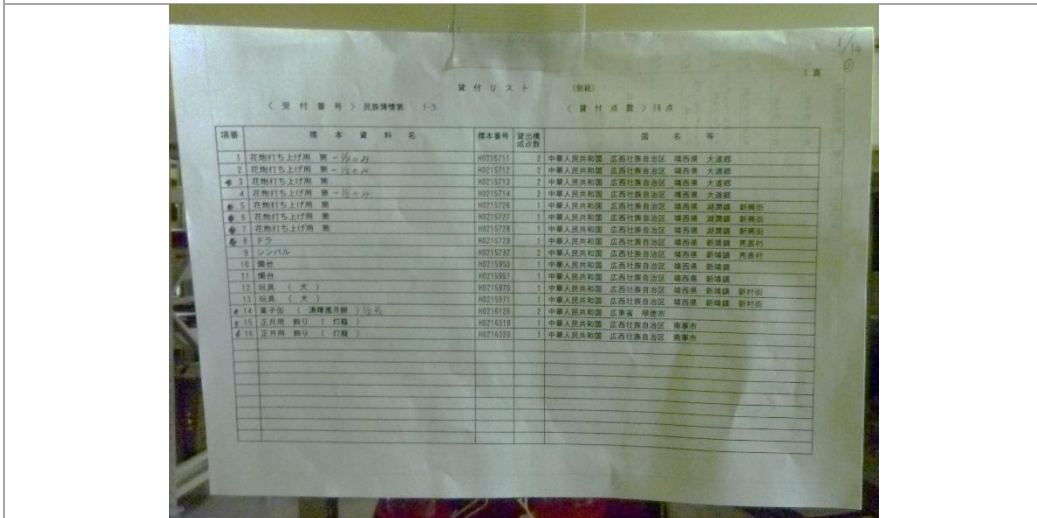 1/14
1 頁
貸 付 リ ス ト (別紙)
< 受 付 番 号 > 民族博情第 1-3 < 貸 付 点 数 > 16 点
項番 標 本 資 料 名 標本番号 貸出構成点数 国 名 等
1 花炮打ち上げ用 筒 -1/2のみ H0215711 2 中華人民共和国 広西壮族自治区 靖西県 大道郷
2 花炮打ち上げ用 筒 -1/2のみ H0215712 2 中華人民共和国 広西壮族自治区 靖西県 大道郷
3 花炮打ち上げ用 筒 H0215713 2 中華人民共和国 広西壮族自治区 靖西県 大道郷
4 花炮打ち上げ用 筒 -1/2のみ H0215714 2 中華人民共和国 広西壮族自治区 靖西県 大道郷
5 花炮打ち上げ用 筒 H0215726 1 中華人民共和国 広西壮族自治区 靖西県 湖潤鎮 新興街
6 花炮打ち上げ用 筒 H0215727 1 中華人民共和国 広西壮族自治区 靖西県 湖潤鎮 新興街
7 花炮打ち上げ用 筒 H0215728 1 中華人民共和国 広西壮族自治区 靖西県 湖潤鎮 新興街
8 ドラ H0215729 1 中華人民共和国 広西壮族自治区 靖西県 新靖鎮
9 シンバル H0215732 2 中華人民共和国 広西壮族自治区 靖西県 新靖鎮
10 燭台 H0215950 1 中華人民共和国 広西壮族自治区 靖西県 新靖鎮
11 燭台 H0215951 1 中華人民共和国 広西壮族自治区 靖西県 新靖鎮
12 玩具 ( 犬 ) H0215970 1 中華人民共和国 広西壮族自治区 靖西県 新靖鎮 新村街
13 玩具 ( 犬 ) H0215971 1 中華人民共和国 広西壮族自治区 靖西県 新靖鎮 新村街
14 菓子缶 ( 月餅 ) H0216126 2 中華人民共和国 広東省 順徳市
15 正月用 飾り ( 灯籠 ) H0216319 1 中華人民共和国 広西壮族自治区 南寧市
16 正月用 飾り ( 灯籠 ) H0216320 1 中華人民共和国 広西壮族自治区 南寧市